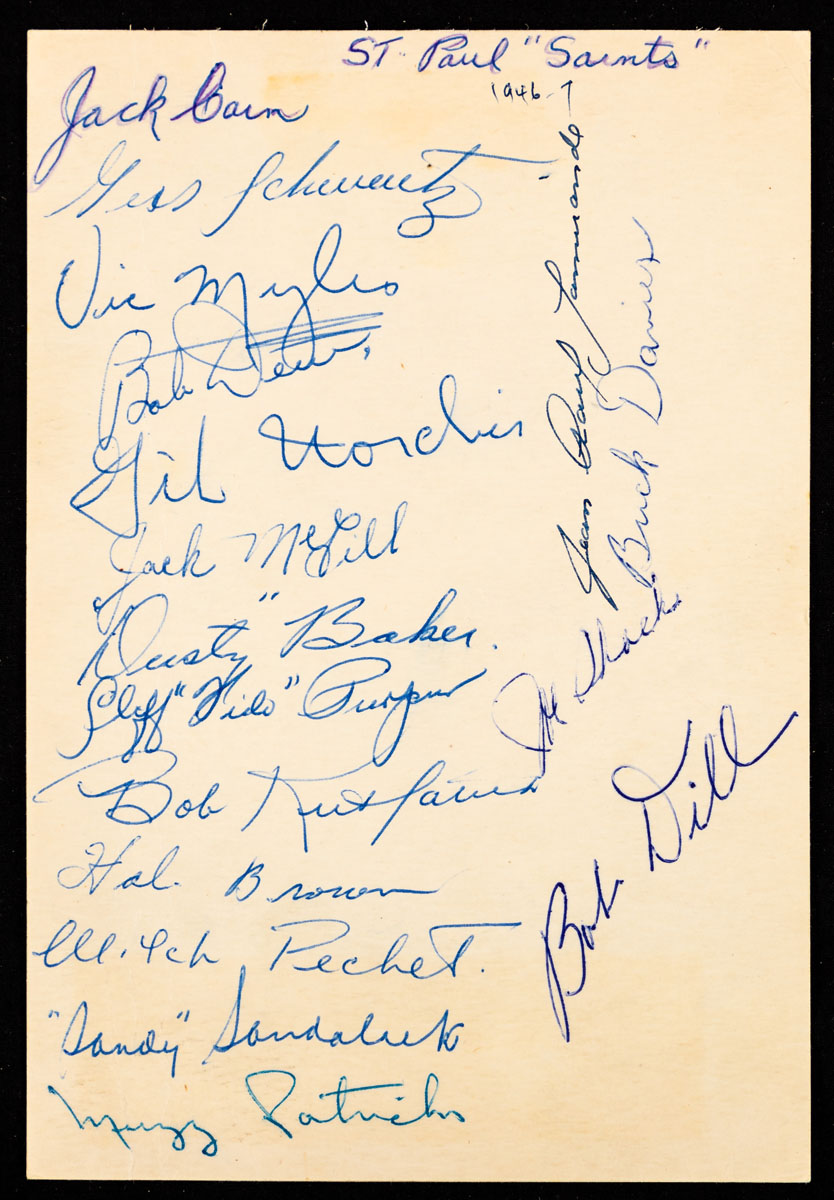 ST. Paul "Saints"
1946-7
Jack
Schwartz
Vic Myles
Bob
Gil
Jack McGill
Dusty" Baker.
Cliff "Fido" Purpur
Bob
Hal. Brown
Mitch Pechet.
"Sandy" Sandalack
Muzz Patrick
Jean Paul Lamirande
Buck Davies
Joe Shack
Bob Dill